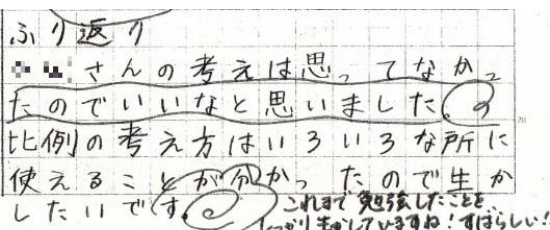 ふり返り
さんの考えは思ってなかっ
たのでいいなと思いました。
比例の考え方はいろいろな所に
使えることが分かったので生か
したいです。
これまで勉強したことを、
しっかり生かしていますね!すばらしい!